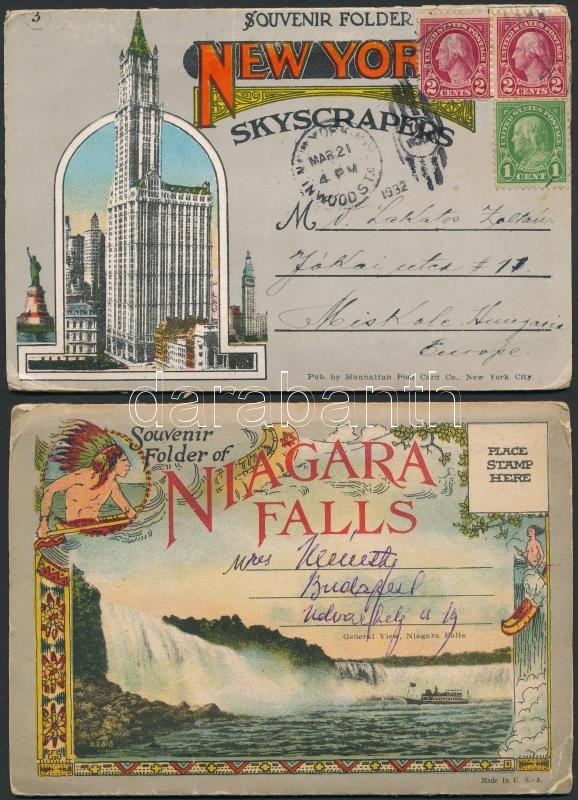 3
SOUVENIR FOLDER
NEW YORK
SKYSCRAPERS
UNITED STATES POSTAGE
2 CENTS 2
UNITED STATES POSTAGE
2 CENTS 2
UNITED STATES POSTAGE
1 CENT 1
NEW YORK, N.Y.
MAR 21
4 PM
INWOOD STA
1932
M r. Lakatos Zoltán
Jókai utca # 11
Miskolc Hungaria
Europe.
Pub. by Manhattan Post Card Co., New York City.
darabanth
Souvenir
Folder of
NIAGARA
FALLS
PLACE
STAMP
HERE
Mrs Németh
Budapest
Udvarhely u 19
General View, Niagara Falls
Made in U. S. A.